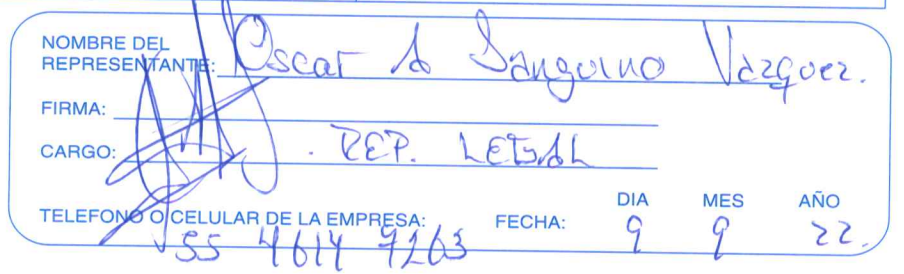 NOMBRE DEL
REPRESENTANTE: Oscar A Sanguino Vazquez.
FIRMA:
CARGO: . REP. LEGAL
DIA MES AÑO
TELEFONO O CELULAR DE LA EMPRESA: 55 4614 7263 FECHA: 9 9 22.